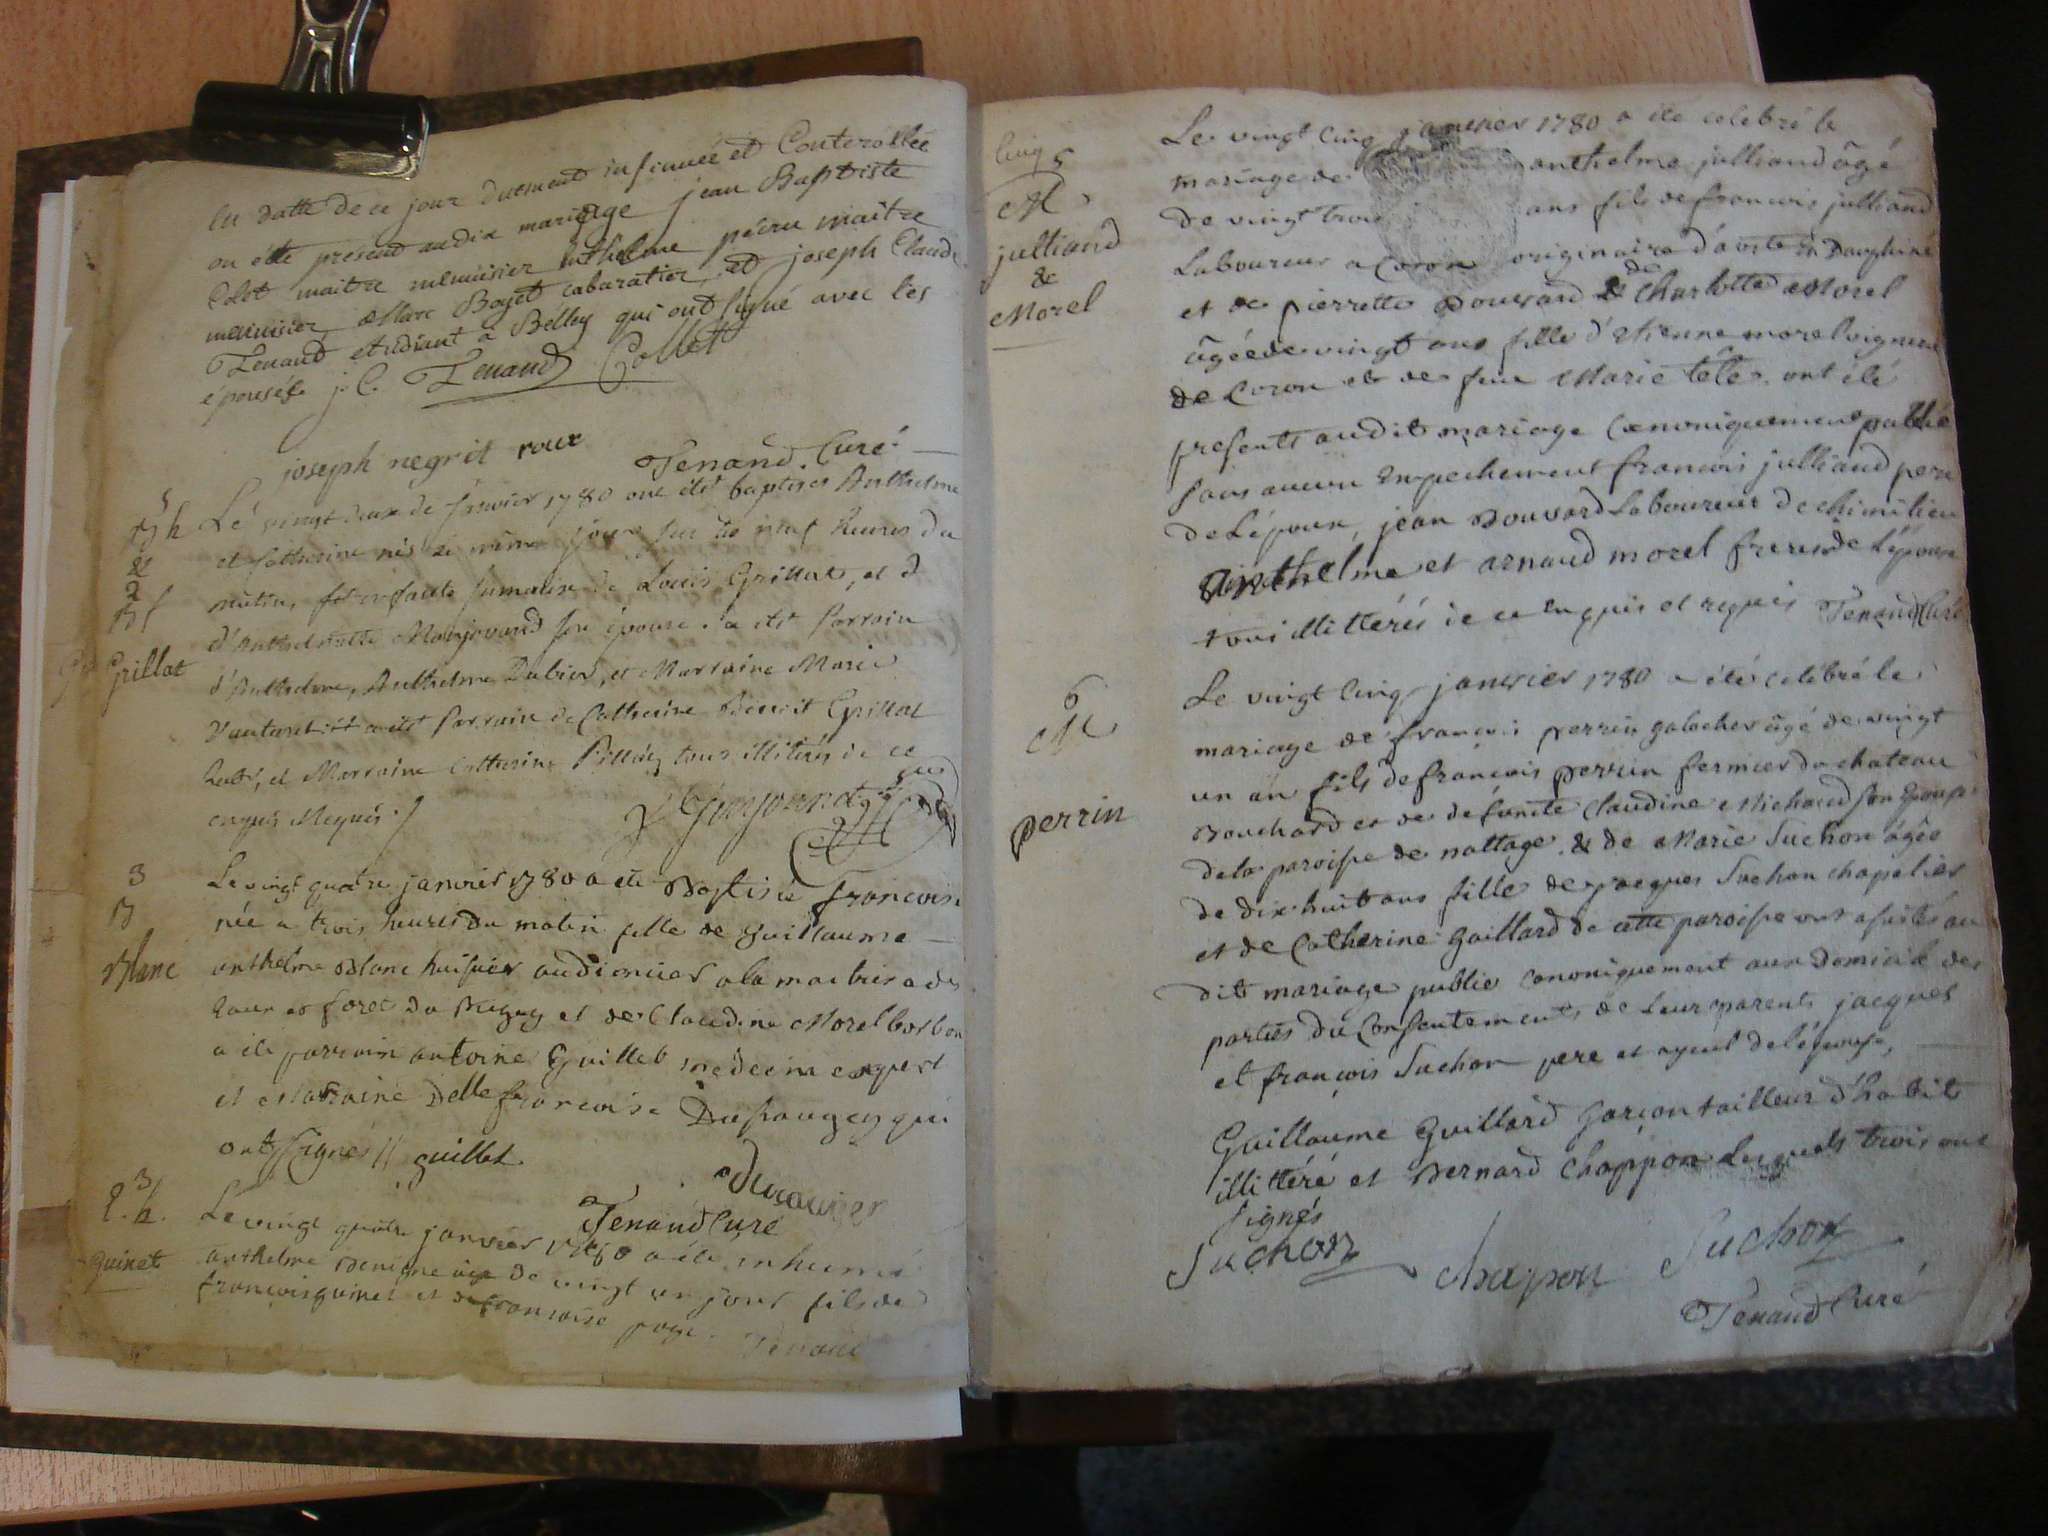 en datte de ce jour duement insinuée et Conterollée
on été présend audix mariage jean Baptiste
Colet maitre menuisier anthelme maitre
menuisier Marc Boget cabaratier, et joseph Claude
Tenand etudiant a Belley qui ont signé avec les
épousés j C Tenand Collet
joseph negrit roux
Tenand. Curé.
5
b h
&
2
b f
Grillat
Le vingt deux de Janvier 1780 ont été baptisés Anthelme
et Catherine nés le même jour sur les neuf heures du
matin, fils enfants jumaux de Louis Grillat, et d
d'Anthelmette Monjovand son épouse. a été Parrain
d'Anthelme, Anthelme Dubier, et Marraine Marie
a été Parrain de Catherine Benoit Grillat
et Marraine Catherine tous illitérés de ce
enquis Requis
3
B
Blanc
Le vingt quatre janvier 1780 a été Baptisée francoise
née a trois heures du matin fille de Guillaume
anthelme Blanc huissier audiencier a la maitrise des
Eaux et foret du Bugey et de Claudine Morel
a été parrain antoine Guillet médecin expert
et Marraine Delle francoise qui
ont signés // guillet
Tenand Curé
3
E. h.
guinet
Le vingt quatre janvier 1780 a été inhumé
anthelme agé de vingt un jours fils de
francois guinet et de francoise page.
Tenand
Cinq 5
M
julliand
&
Morel
Le vingt Cinq janvier 1780 a été celebré le
mariage de anthelme julliand âgé
de vingt trois ans fils de francois julliand
Laboureur a Coron originaire d'aoste en Dauphiné
et de pierrette Douvard & de Charlotte Morel
âgée de vingt ans fille d'Etienne morel vigneron
de Coron et de feue Marie tête. ont été
presents audit mariage Canoniquement publié
sans aucun Empechement francois julliand pere
de Lépoux, jean Douvard Laboureur de chimilieu
Anthelme et arnaud morel freres de Lépouse
tous illittérés de ce enquis et requis Tenand Curé
6
M
perrin
Le vingt Cinq janvier 1780 a été célébré le
mariage de françois perrin galocher âgé de vingt
un an fils de françois perrin fermier du chateau
Bouchard et de défunte Claudine Michaud son Epouse
de la paroisse de nattage. & de Marie Suchon âgée
de dix huit ans fille de jacques Suchon chapelier
et de Catherine Gaillard de cette paroisse ont assistés au
dit mariage publié canoniquement aux domicile des
parties du Consentement de Leurs parents jacques
et françois Suchon pere et ayeul de lépouse,
Guillaume Guillard garçon tailleur d'habit
illittéré et Bernard Chappon Lesquels trois ont
signés
Suchon chapon Suchon
Tenand Curé